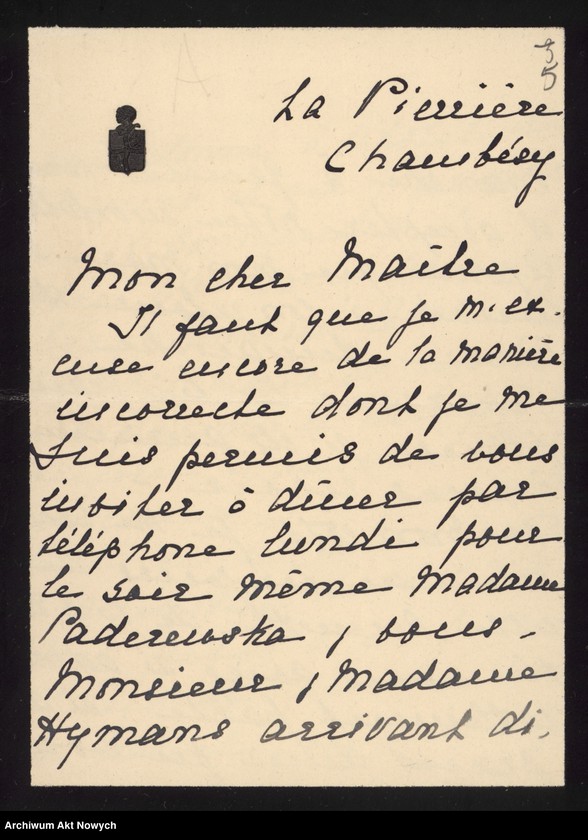 35
La Pierrière
Chambésy
Mon cher Maître
Il faut que je m'ex-
cuse encore de la manière
incorrecte dont je me
suis permis de vous
inviter à dîner par
téléphone lundi pour
le soir même Madame
Paderewska, vous.
Monsieur, Madame
Hymans arrivant di-
Archiwum Akt Nowych